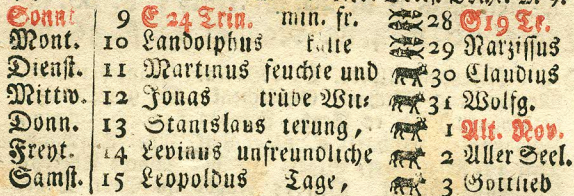 Sonnt 9 E 24 Trin. min. fr. 28 G 19 Tr.
Mont. 10 Landolphus kalte 29 Narzissus
Dienst. 11 Martinus feuchte und 30 Claudius
Mittw. 12 Jonas trübe Wit: 31 Wolfg.
Donn. 13 Stanislaus terung, 1 Alt. Nov.
Freyt. 14 Levinus unfreundliche 2 Aller Seel.
Samst. 15 Leopoldus Tage, 3 Gottlieb